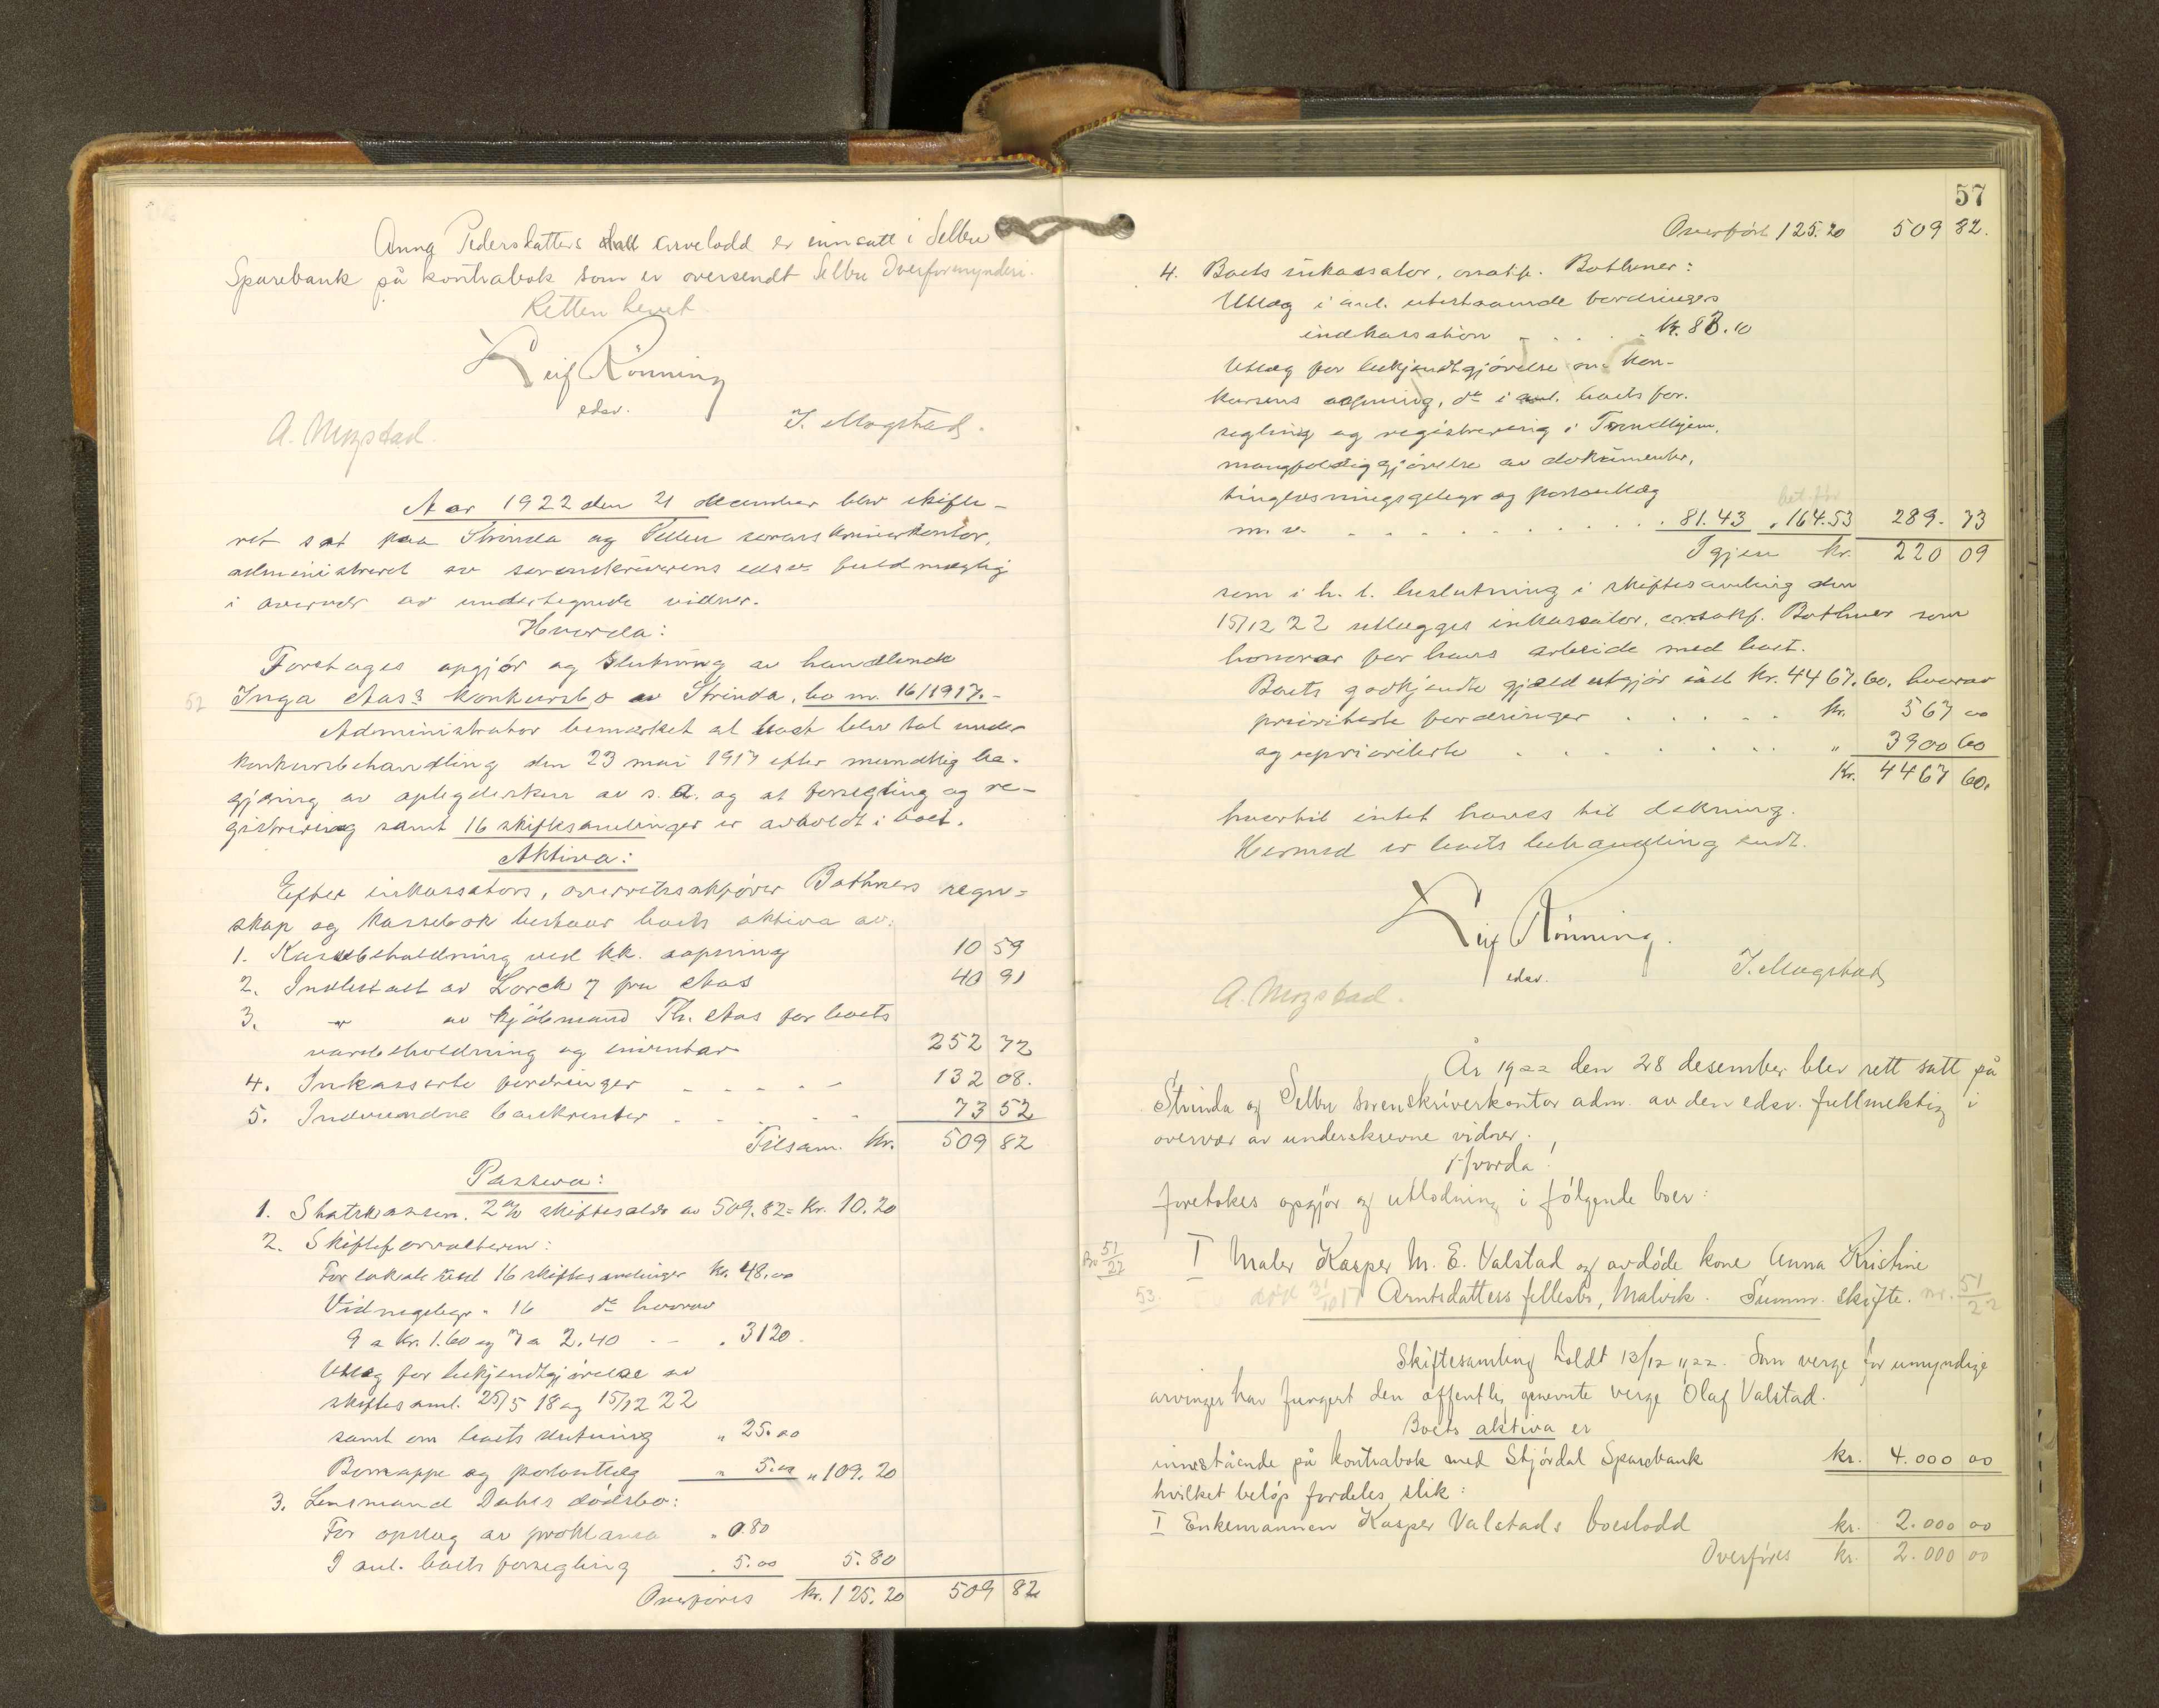 Anna Pedersdatters arvelodd er innsatt i Selbu
Sparebank på kontrabok som er oversendt Selbu Overformynderi.
Retten hevet.
Leif Rönning
edsv.
A. Mogstad.
J. Mogstad.
Aar 1922 den 21 december blev skifte-
ret sat paa Strinda og Selbu sorenskriverkontor,
administreret av sorenskriverens edsv. fuldmægtig
i overvær av undertegnede vidner.
Hvorda:
Foretages opgjör og slutning av handlende
52 Inga Aas's konkursbo av Strinda, bo nr. 16/1917.-
Administrator bemerket at boet blev tat under
konkursbehandling den 23 mai 1917 efter mundtlig be-
gjæring av opbydersken av s. d. og at forsegling og re-
gistrering samt 16 skiftesamlinger er avholdt i boet.
Aktiva:
Efter inkassators, overretssakförer Bothners regn-
skap og kassebok bestaar boets aktiva av:
1. Kassebeholdning ved kk. aapning 10 59
2. Indbetalt av Lorck 7 fru Aas 40 91
3. " av kjöbmand Th. Aas for boets
varebeholdning og inventar 252 72
4. Inkasserte fordringer - - - - - 132 08.
5. Indvundne bankrenter . . . . 73 52
Tilsam. kr. 509 82
Passiva:
1. Statskassen. 2% skifteavgift av 509.82 = kr. 10.20
2. Skifteforvalteren:
For lokale ved 16 skiftesamlinger kr. 48.00
Vidnegebyr " 16 do hvorav
9 a kr. 1.60 og 7 a 2.40 - - " 31 20
Utlæg for bekjendtgjörelse av
skiftesaml. 25/5 18 og 15/12 22
samt om boets slutning " 25.00
Bomappe og portoutlæg " 5.00 " 109.20
3. Lensmand Dahls dödsbo:
For opslag av proklama " 0.80
I anl. boets forsegling " 5.00 5.80
Overföres kr. 125.20 509 82
57
Overfört 125.20 509 82.
4. Boets inkassator, orsakf. Bothner:
Utlæg i anl. utestaaende fordringers
indkassation - . . . . kr. 83.10
Utlæg for bekjendtgjörelse om kon-
kursens aapning, do i anl. boets for-
segling og registrering i Trondhjem,
mangfoldiggjörelse av dokumenter,
tinglæsningsgebyr og portoutlæg
m. v. - - - - - - - - - " 81.43 " 164.53 289. 73
Igjen kr. 220 09
som i h. t. beslutning i skiftesamling den
15/12 22 utlægges inkassator, orsakf. Bothner som
honorar for hans arbeide med boet.
Boets godkjendte gjæld utgjör ialt kr. 4467.60. hvorav
prioriterte fordringer . . . . . kr. 567 00
og uprioriterte . . . . . . . " 3900 60
Kr. 4467 60.
hvortil intet haves til dekning.
Hermed er boets behandling endt.
Leif Rönning.
edsv.
A. Mogstad.
J. Mogstad
År 1922 den 28 desember blev rett satt på
Strinda og Selbu sorenskriverkontor adm. av den edsv. fullmektig i
overvær av underskrevne vidner.
Hvorda!
foretokes opgjör og utlodning i følgende boer:
Bo 51/22 I Maler Kasper M. E. Valstad og avdøde kone Anna Kristine
53. Arntsdatters fellesbo, Malvik. Summ. skifte. nr. 51/22
Skiftesamling holdt 13/12 1922. Som verge for umyndige
arvinger har fungert den offentlig opnevnte verge Olaf Valstad.
Boets aktiva er
innestående på kontrabok med Stjørdal Sparebank kr. 4.000 00
hvilket beløp fordeles slik:
I Enkemannen Kasper Valstads boeslodd kr. 2.000 00
Overføres kr. 2.000 00